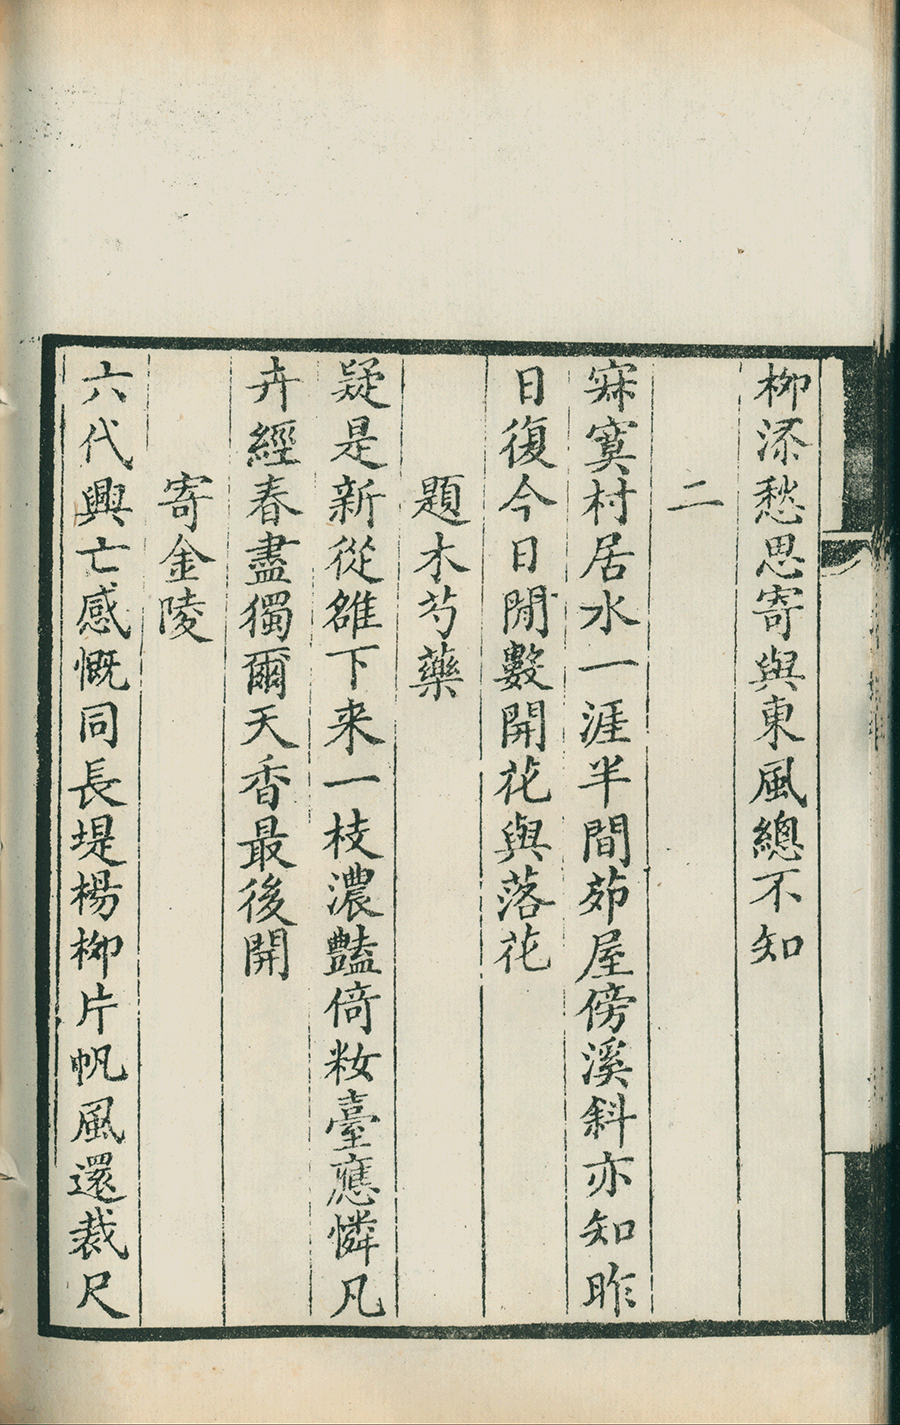 柳添愁思寄與東風總不知
二
寂寞村居水一涯半間茆屋傍溪斜亦知昨
日復今日閒數開花與落花
題木芍藥
疑是新從雒下来一枝濃豔倚妝臺應憐凡
卉經春盡獨爾天香最後開
寄金陵
六代興亡感慨同長堤楊柳片帆風還裁尺